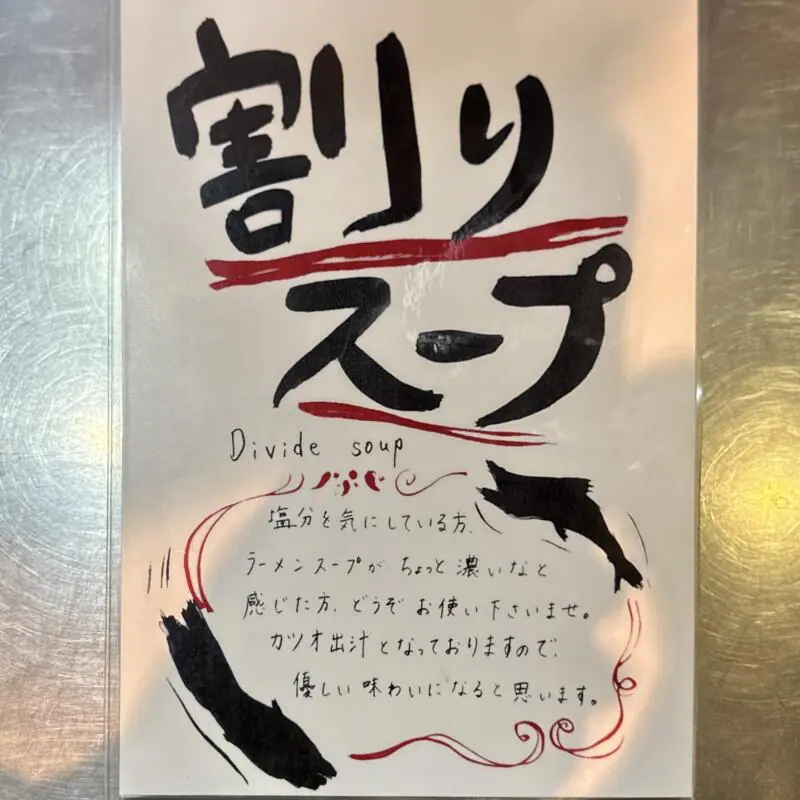 割り
スープ
Divide soup
塩分を気にしている方、
ラーメンスープがちょっと濃いなと
感じた方、どうぞお使い下さいませ。
カツオ出汁となっておりますので、
優しい味わいになると思います。